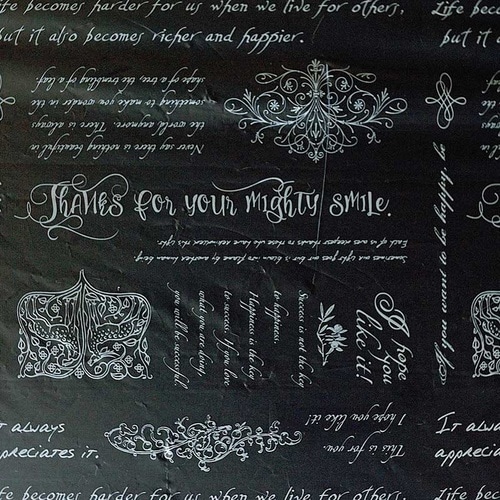 Life becomes harder for us when we live for others,
Life becomes
but it also becomes richer and happier.
but it a
Never say there is nothing beautiful in
the world anymore. There is always
something to make you wonder in the
shape of a tree, the trembling of a leaf.
Thanks for your mighty smile.
Sometimes our light goes out but is blown into flame by another human being.
Each of us owes deepest thanks to those who have rekindled this light
if you want to be happy be
I hope
you
like it!
Success is not the key
to happiness.
Happiness is the key
to success. If you love
what you are doing,
you will be successful
It always
appreciates it.
This is for you.
I hope you like it!
It always
apprecia
Life becomes harder for us when we live for others,
Life becomes